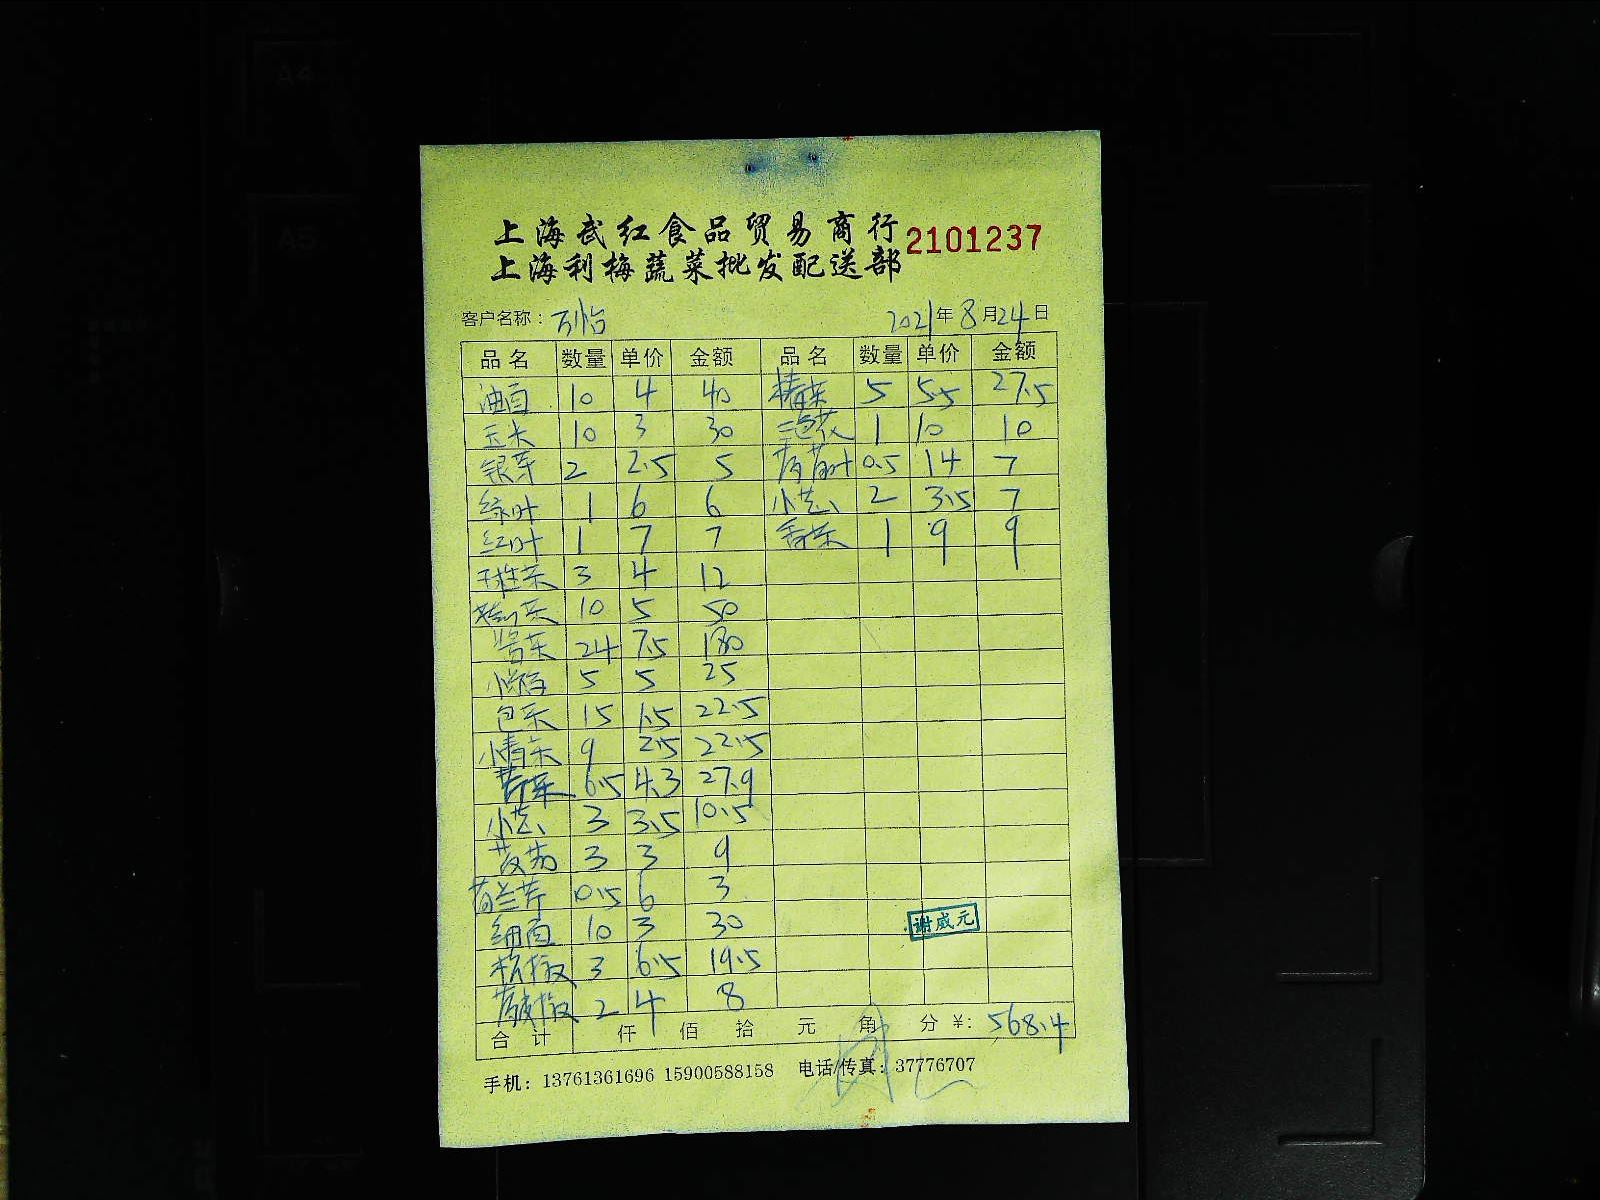 上海武红食品贸易商行
上海利梅蔬菜批发配送部 2101237
客户名称：万怡 2021年8月24日
品名 数量 单价 金额 品名 数量 单价 金额
油百 10 4 40 5 5.5 27.5
玉米 10 3 30 三色花 1 10 10
银芽 2 2.5 5 0.5 14 7
绿叶 1 6 6 小芒 2 3.5 7
红叶 1 7 7 香菜 1 9 9
3 4 12
10 5 50
24 7.5 180
5 5 25
包菜 15 1.5 22.5
小青菜 9 2.5 22.5
芹菜 6.5 4.3 27.9
小芒 3 3.5 10.5
3 3 9
荷兰芹 0.5 6 3
10 3 30
杭椒 3 6.5 19.5
2 4 8
谢威元
合计 仟 佰 拾 元 角 分 ¥: 568.4
手机：13761361696 15900588158 电话/传真：37776707